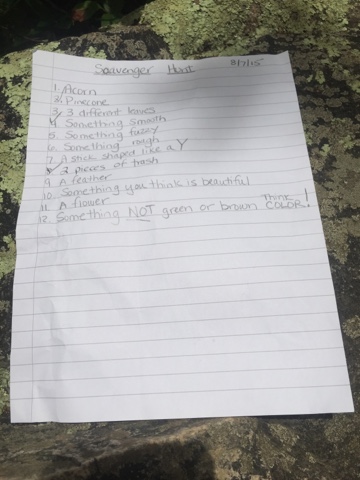 Scavenger Hunt 8/7/15
1. Acorn
2. Pinecone
3. 3 different leaves
4. Something smooth
5. Something fuzzy
6. Something rough
7. A stick shaped like a Y
8. 2 pieces of trash
9. A feather
10. Something you think is beautiful
11. A flower
12. Something NOT green or brown THINK COLOR!